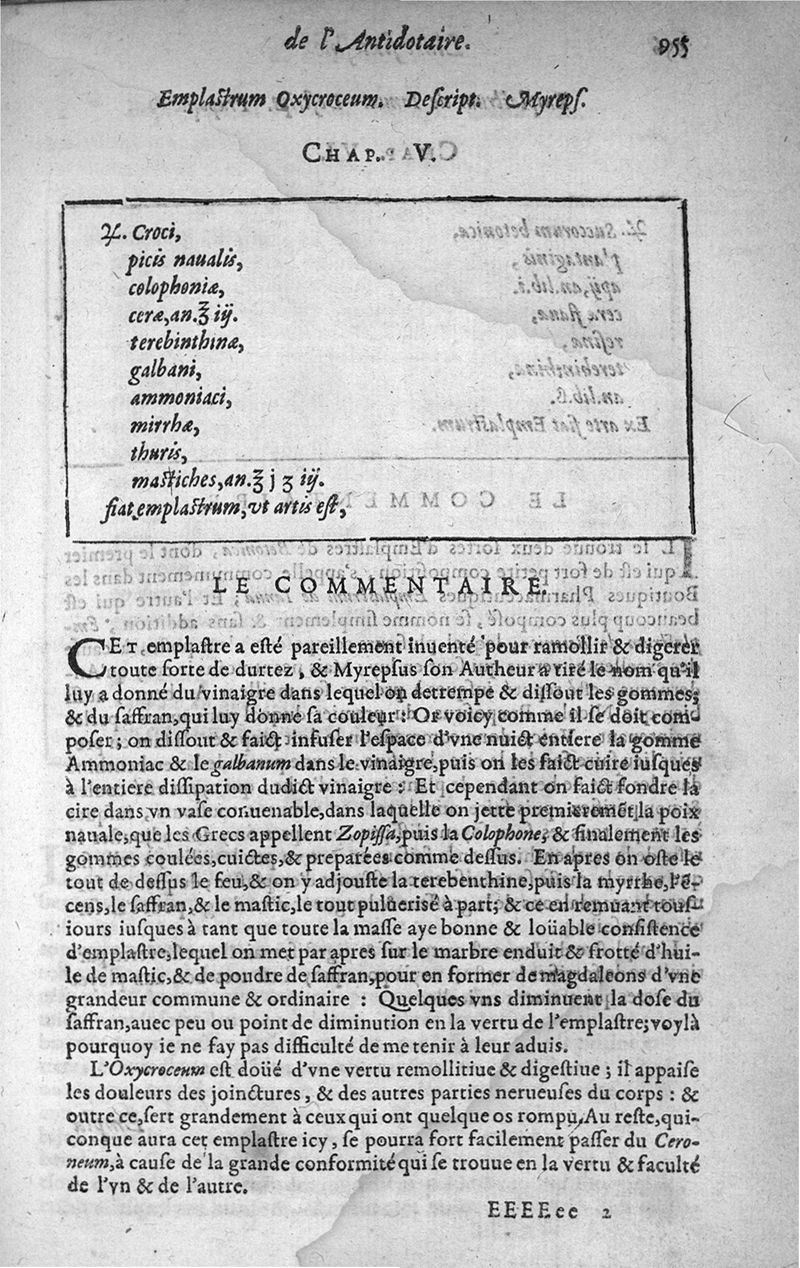 de l'Antidotaire. 955
Emplaſtrum Oxycroceum. Deſcript. Myrepſ.
CHAP. V.
♃. Croci,
picis naualis,
colophoniæ,
ceræ, an.℥ iij.
terebinthinæ,
galbani,
ammoniaci,
mirrhæ,
thuris,
maſtiches, an.℥ j ʒ iij.
fiat emplaſtrum, vt artis eſt,
LE COMMENTAIRE.
CET emplaſtre a eſté pareillement inuenté pour ramollir & digerer
toute ſorte de durtez, & Myrepſus ſon Autheur a tiré le nom qu'il
luy a donné du vinaigre dans lequel on detrempe & diſſout les gommes;
& du ſaffran, qui luy donne ſa couleur: Or voicy comme il ſe doit com
poſer; on diſſout & faict infuſer l'eſpace d'vne nuict entiere la gomme
Ammoniac & le galbanum dans le vinaigre, puis on les faict cuire iuſques
à l'entiere diſſipation dudict vinaigre: Et cependant on faict fondre la
cire dans vn vaſe conuenable, dans laquelle on jette premieremēt la poix
nauale, que les Grecs appellent Zopiſſa, puis la Colophone, & finalement les
gommes coulées, cuictes, & preparées comme deſſus. En apres on oſte le
tout de deſſus le feu, & on y adjouſte la terebenthine, puis la myrrhe, l'ē-
cens, le ſaffran, & le maſtic, le tout puluerisé à part; & ce en remuant touſ-
iours iuſques à tant que toute la maſſe aye bonne & loüable conſiſtence
d'emplaſtre, lequel on met par apres ſur le marbre enduit & frotté d'hui-
le de maſtic, & de poudre de ſaffran, pour en former de magdaleons d'vne
grandeur commune & ordinaire : Quelques vns diminuent la doſe du
ſaffran, auec peu ou point de diminution en la vertu de l'emplaſtre; voylà
pourquoy ie ne fay pas difficulté de me tenir à leur aduis.
L'Oxycroceum eſt doüé d'vne vertu remollitiue & digeſtiue ; il appaiſe
les douleurs des joinctures, & des autres parties nerueuſes du corps : &
outre ce, ſert grandement à ceux qui ont quelque os rompu. Au reſte, qui-
conque aura cet emplaſtre icy, ſe pourra fort facilement paſſer du Cero-
neum, à cauſe de la grande conformité qui ſe trouue en la vertu & faculté
de l'vn & de l'autre.
EEEEee 2